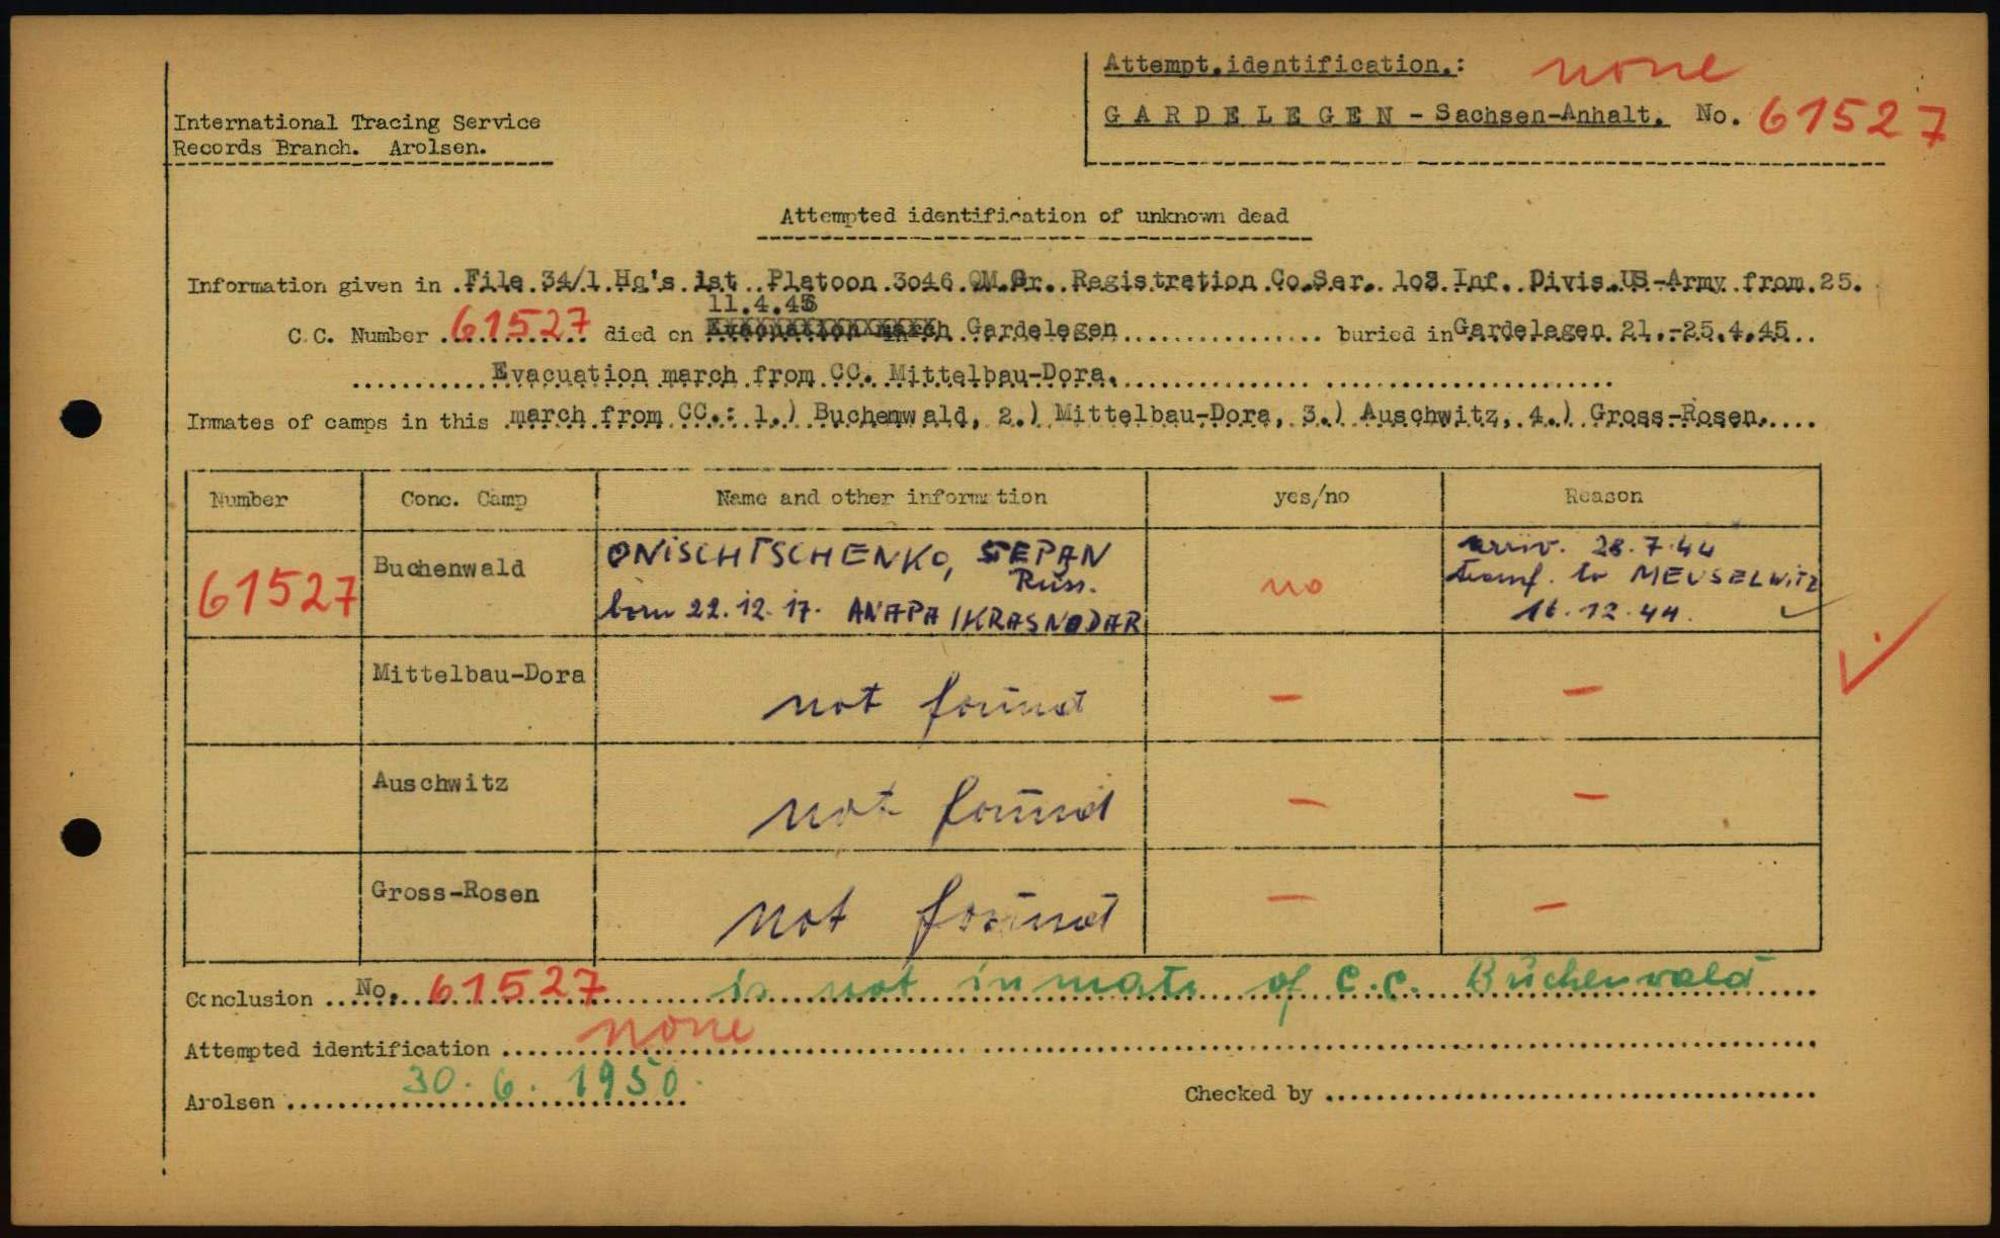 Attempt.identification.: none
GARDELEGEN - Sachsen-Anhalt. No. 61527
International Tracing Service
Records Branch. Arolsen.
Attempted identification of unknown dead
Information given in File 34/1 Hq's 1st Platoon 3046 QM.Gr. Registration Co.Ser. 103 Inf. Divis.US-Army from 25.
11.4.45
C.C. Number 61527 died on in Gardelegen buried in Gardelegen 21.-25.4.45
Evacuation march from CC. Mittelbau-Dora.
Inmates of camps in this march from CC.: 1.) Buchenwald, 2.) Mittelbau-Dora, 3.) Auschwitz, 4.) Gross-Rosen.
Number Conc. Camp Name and other information yes/no Reason
61527 Buchenwald ONISCHTSCHENKO, STEPAN Russ. born 22.12.17. ANAPA/KRASNODAR no arriv. 28.7.44 transf. to MEUSELWITZ 16.12.44.
Mittelbau-Dora not found — —
Auschwitz not found — —
Gross-Rosen not found — —
Conclusion No. 61527 is not inmate of C.C. Buchenwald
Attempted identification none
Arolsen 30.6.1950. Checked by